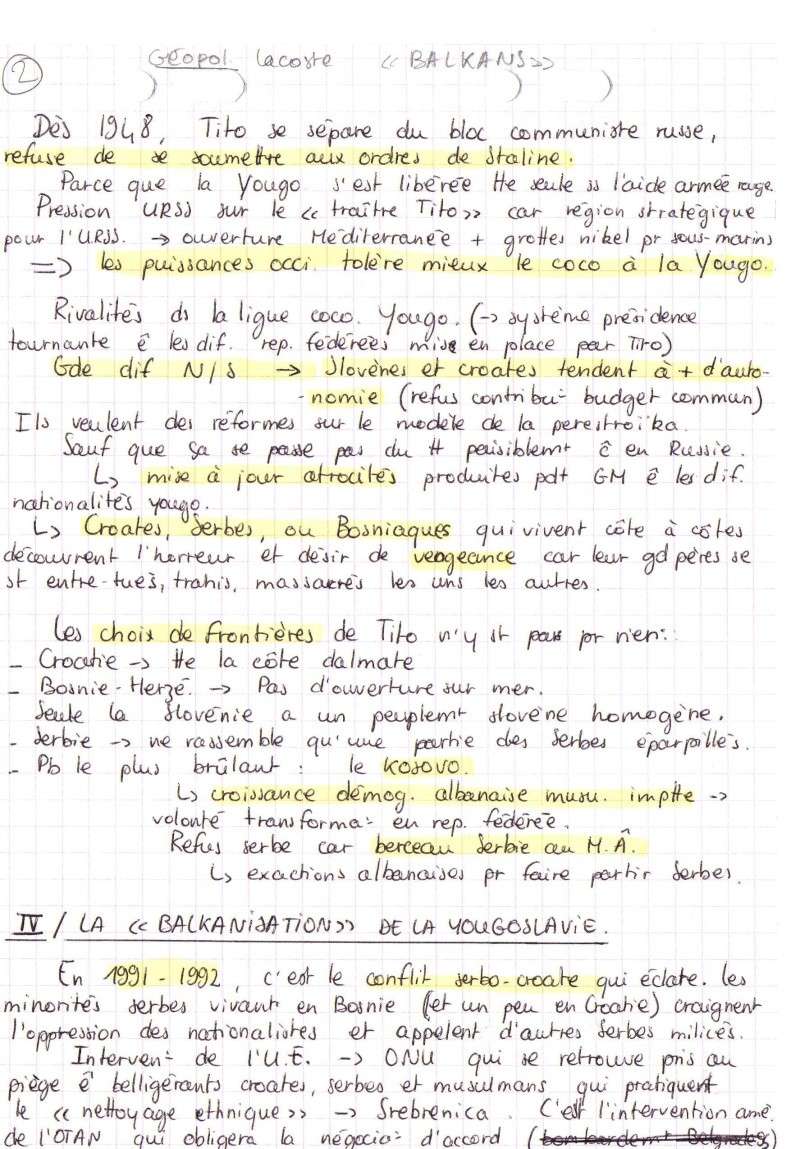 2 GEOPOL lacoste << BALKANS >>
Dès 1948, Tito se sépare du bloc communiste russe,
refuse de se soumettre aux ordres de Staline.
Parce que la Yougo s'est libérée tte seule ss l'aide armée rouge.
Pression URSS sur le << traître Tito >> car région stratégique
pour l'URSS. → ouverture Méditerranée + grottes nikel pr sous-marins
=> les puissances occi. tolère mieux le coco à la Yougo.
Rivalités ds la ligue coco. Yougo. (→ système présidence
tournante ê les dif. rep. fédérées mise en place par Tito)
Gde dif N/S → Slovènes et croates tendent à + d'auto-
-nomie (refus contribu= budget commun)
Ils veulent des réformes sur le modèle de la perestroïka.
Sauf que ça se passe pas du tt paisiblemt ĉ en Russie.
↳ mise à jour atrocités produites pdt GM ê les dif.
nationalités yougo.
↳ Croates, Serbes, ou Bosniaques qui vivent côte à côtes
découvrent l'horreur et désir de vengeance car leur gd pères se
st entre-tués, trahis, massacrés les uns les autres.
Les choix de frontières de Tito n'y st pas pr rien:
- Croatie → tte la côte dalmate
- Bosnie-Herzé. → Pas d'ouverture sur mer.
Seule la Slovénie a un peuplemt slovène homogène.
- Serbie → ne rassemble qu'une partie des Serbes éparpillés.
- Pb le plus brûlant : le Kosovo.
↳ croissance démog. albanaise musu. imptte →
volonté transforma= en rep. fédérée.
Refus serbe car berceau Serbie au M.Â.
↳ exactions albanaises pr faire partir Serbes.
IV / LA << BALKANISATION >> DE LA YOUGOSLAVIE.
En 1991 - 1992, c'est le conflit serbo-croate qui éclate. Les
minorités serbes vivant en Bosnie (et un peu en Croatie) craignent
l'oppression des nationalistes et appelent d'autres Serbes milices.
Interven= de l'U.E. → ONU qui se retrouve pris au
piège ê belligérants croates, serbes et musulmans qui pratiquent
le << nettoyage ethnique >> → Srebrenica. C'est l'intervention amé.
de l'OTAN qui obligera la négocia= d'accord (bombardemt Belgrade)